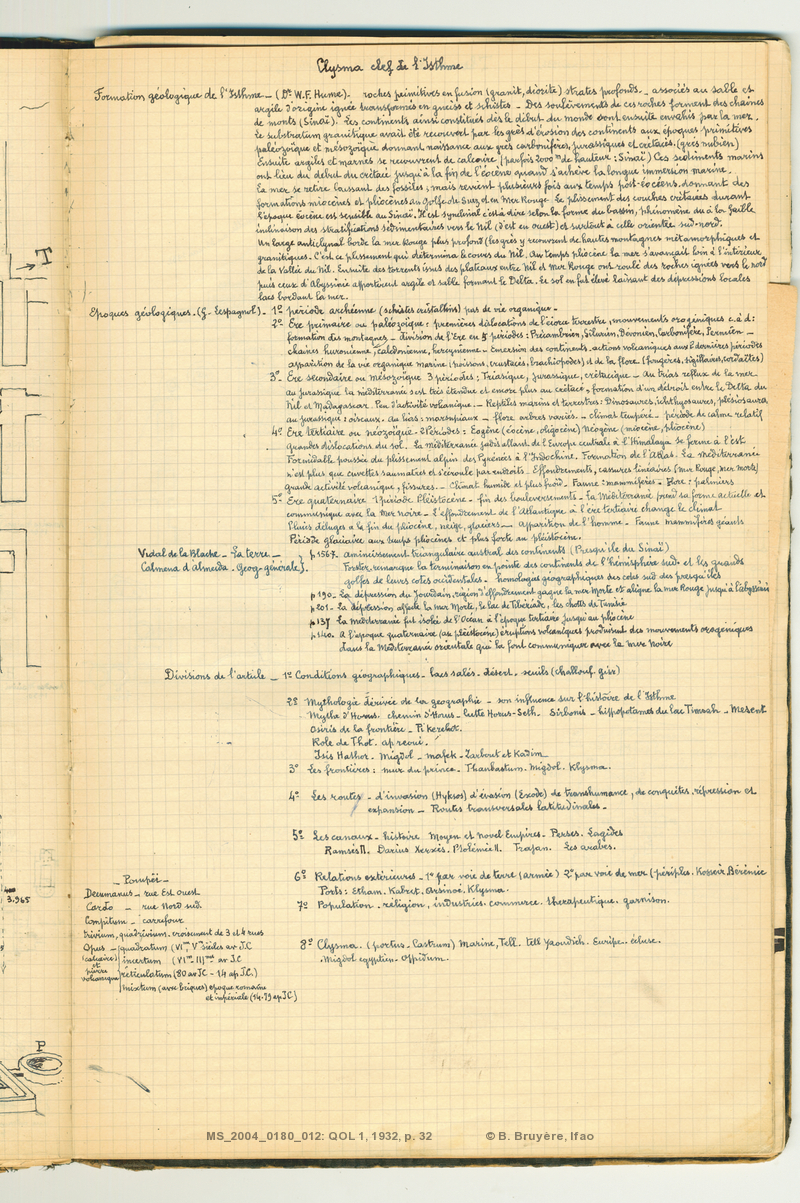 Clysma clef de l'Isthme
Formation géologique de l'Isthme — (Dr W.F. Hume). roches primitives en fusion (granit, diorite) strates profonds. — associés au sable et
argile d'origine ignée transformés en gneiss et schistes — Des soulèvements de ces roches forment des chaînes
de monts (Sinaï). Les continents ainsi constitués dès le début du monde sont ensuite envahis par la mer.
Le substratum granitique avait été recouvert par les grès d'érosion des continents aux époques primitives
paléozoïque et mésozoïque donnant naissance aux grès carbonifères, jurassiques et crétacés. (grès nubien)
Ensuite argiles et marnes se recouvrent de calcaire (parfois 2000 m de hauteur : Sinaï) Ces sédiments marins
ont lieu du début du crétacé jusqu'à la fin de l'éocène quand s'achève la longue immersion marine.
La mer se retire laissant des fossiles, mais revient plusieurs fois aux temps post-éocènes donnant des
formations miocènes et pliocènes au Golfe de Suez et en Mer Rouge. Le plissement des couches crétacées durant
l'époque éocène est sensible au Sinaï. Il est synclinal c'est à dire selon la forme du bassin, phénomène dû à la faible
inclinaison des stratifications sédimentaires vers le Nil (d'est en ouest) et surtout à celle orientée sud-nord.
Un large anticlynal borde la mer Rouge plus profond (les grès y recouvrent de hautes montagnes métamorphiques et
granitiques. C'est ce plissement qui détermina le cours du Nil. Au temps pliocène la mer s'avançait loin à l'intérieur
de la Vallée du Nil. Ensuite des torrents issus des plateaux entre Nil et Mer Rouge ont roulé des roches ignées vers le nord
puis ceux d'Abyssinie apportèrent argile et sable formant le Delta. Le sol en fut élevé laissant des dépressions locales
lacs bordant la mer.
Epoques géologiques. (G. Lespagnol) — 1° période archéenne (schistes cristallins) pas de vie organique —
2° Ere primaire ou paléozoïque : premières dislocations de l'écorce terrestre, mouvements orogéniques c.a d :
formation des montagnes — division de l'ère en 5 périodes : Précambrien, Silurien, Dévonien, Carbonifère, Permien —
chaînes huronienne, calédonienne, hercynienne — émersion des continents. actions volcaniques aux 2 dernières périodes
apparition de la vie organique marine (poissons, crustacés, brachiopodes) et de la flore. (fougères, sigillaires, cordaïtes)
3° Ere secondaire ou mésozoïque 3 périodes : Triasique, Jurassique, crétacique — Au trias reflux de la mer
au jurassique la méditerranée est très étendue et encore plus au crétacé, formation d'un détroit entre le Delta du
Nil et Madagascar. Peu d'activité volcanique. — Reptiles marins et terrestres : Dinosaures, ichthyosaures, plésiosaures
au jurassique : oiseaux. Au lias : marsupiaux — flore arbres variés. — climat tempéré. — période de calme relatif
4° Ere tertiaire ou néozoïque. 2 Périodes : Eogène (éocène, oligocène) Néogène (miocène, pliocène)
grandes dislocations du sol. La méditerranée jadis allant de l'Europe centrale à l'Himalaya se ferme à l'est
Formidable poussée du plissement alpin des Pyrénées à l'Indochine. Formation de l'Atlas. La Méditerranée
n'est plus que cuvettes saumâtres et s'écroule par endroits — Effondrements, cassures linéaires (mer Rouge, mer morte)
grande activité volcanique, fissures. — Climat humide et plus froid. Faune : mammifères. Flore : palmiers
5° Ere quaternaire 1 période Pléistocène — fin des bouleversements — La Méditerranée prend sa forme actuelle et
communique avec la mer noire — L'effondrement de l'Atlantique à l'ère tertiaire change le climat
Pluies déluges à la fin du pliocène, neige, glaciers — apparition de l'homme — Faune mammifères géants
Période glaciaire aux temps pliocènes et plus forte au pléistocène.
Vidal de la Blache — La terre. —
Calmena d'Almeida. Geog- générale).
p. 156 7. amincissement triangulaire austral des continents (Presqu'île du Sinaï)
Forster remarque la terminaison en pointe des continents de l'hémisphère sud et les grands
golfes de leurs côtes occidentales — homologies géographiques des côtes sud des presqu'iles
p 190 — La dépression du Jourdain, région d'effondrement gagne la mer Morte et aligne la mer Rouge jusqu'à l'abyssinie
p 201 — La dépression affecte la mer Morte, le lac de Tibériade, les chotts de Tunisie
p 137 la méditerranée fut isolée de l'Océan à l'époque tertiaire jusqu'au pliocène
p 140. A l'époque quaternaire (au pléistocène) éruptions volcaniques produisent des mouvements orogéniques
dans la Méditerranée orientale qui la font communiquer avec la mer noire
Divisions de l'article — 1° Conditions géographiques — lacs salés. désert. seuils (challouf. gisr)
2° Mythologie dérivée de la géographie — son influence sur l'histoire de l'Isthme
Mythe d'Horus. chemin d'Horus — lutte Horus-Seth. Sirbonis — hippopotames du lac Timsah — Mesent
Osiris de la frontière — Pikerehet.
Role de Thot. ap reoui.
Isis Hathor. Migdol — mafek — Zarbout et Kadim
3° Les frontières : mur du prince. Thaubastum. Migdol. Klysma.
4° Les routes — d'invasion (Hyksos) d'évasion (Exode) de transhumance, de conquêtes, répression et
expansion — Routes transversales latitudinales —
5° Les canaux — histoire Moyen et Novel Empires. Perses. Lagides
Ramsès II. Darius Xerxès. Ptolémée II. Trajan. Les arabes.
6° Relations extérieures — 1° par voie de terre (armée) 2° par voie de mer (périples. Kosseir Bérénice
Ports : Etham. Kabret. Arsinoé. Klysma.
7° Population. réligion, industries. commerce. therapeutique. garnison.
8° Clysma. (portus. Castrum) Marine, Tell. tell Yaoudieh. Euripe. écluse.
Migdol egyptien. Oppidum.
— Pompéi —
Decumanus — rue Est ouest
Cardo — rue Nord sud.
Compitum — carrefour
trivium, quadrivium. croisement de 3 et 4 rues
Opus — quadratum (VIme Ve siècles av J.C
(calcaire) incertum (VIme IIIme av J.C
et pierre volcanique reticulatum (80 av JC — 14 ap J.C.)
mixtum (avec briques) époque romaine
et impériale (14-79 ap J.C)
T
3.965
P
MS_2004_0180_012: QOL 1, 1932, p. 32 © B. Bruyère, Ifao